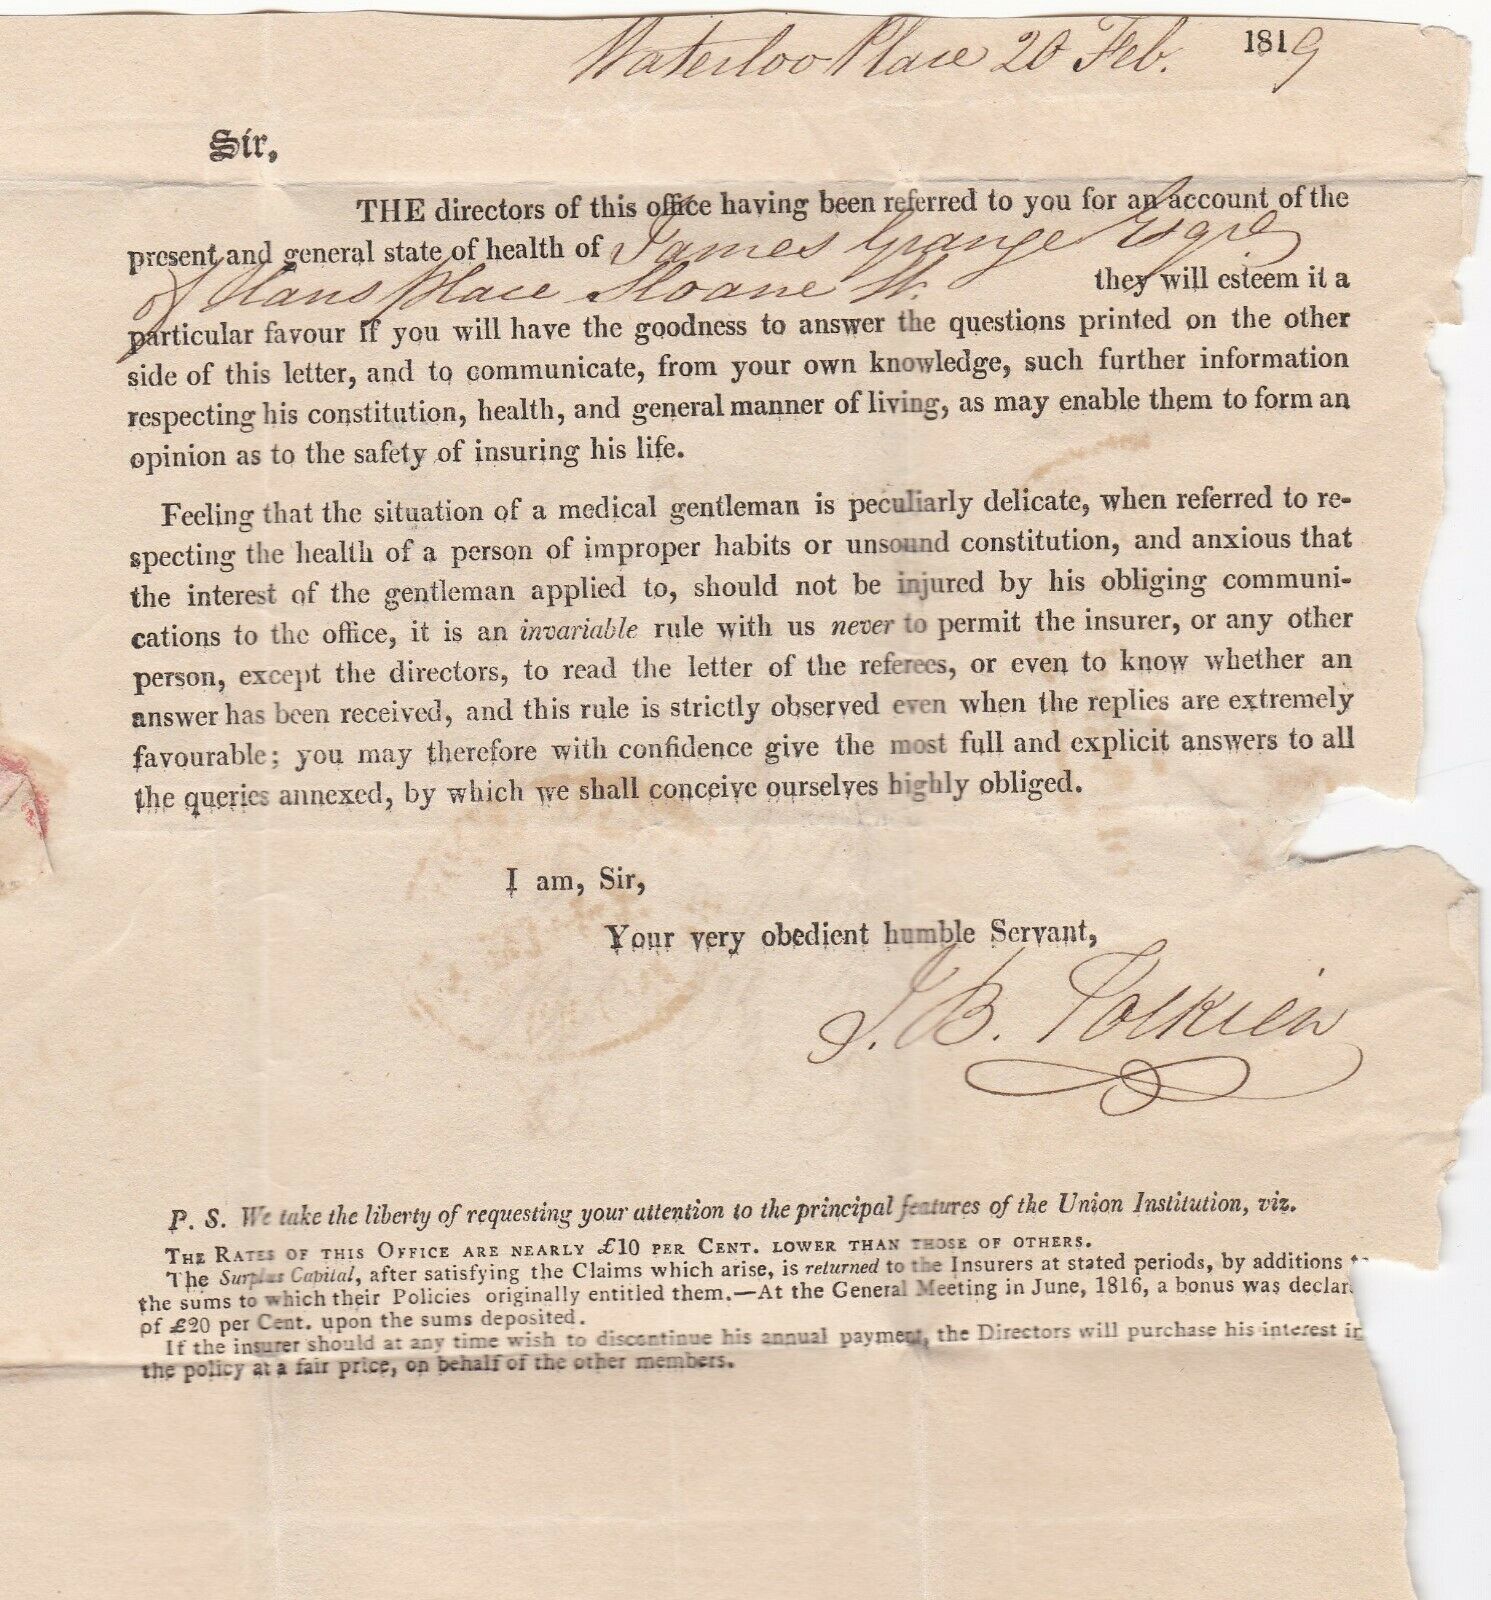 Waterloo Place 20 Feb. 1819
Sir,
THE directors of this office having been referred to you for an account of the
present and general state of health of James Grange Esqre
of Hans Place Sloane St. they will esteem it a
particular favour if you will have the goodness to answer the questions printed on the other
side of this letter, and to communicate, from your own knowledge, such further information
respecting his constitution, health, and general manner of living, as may enable them to form an
opinion as to the safety of insuring his life.
Feeling that the situation of a medical gentleman is peculiarly delicate, when referred to re-
specting the health of a person of improper habits or unsound constitution, and anxious that
the interest of the gentleman applied to, should not be injured by his obliging communi-
cations to the office, it is an invariable rule with us never to permit the insurer, or any other
person, except the directors, to read the letter of the referees, or even to know whether an
answer has been received, and this rule is strictly observed even when the replies are extremely
favourable; you may therefore with confidence give the most full and explicit answers to all
the queries annexed, by which we shall conceive ourselves highly obliged.
I am, Sir,
Your very obedient humble Servant,
J. B. Tolkien
P. S. We take the liberty of requesting your attention to the principal features of the Union Institution, viz.
THE RATES OF THIS OFFICE ARE NEARLY £10 PER CENT. LOWER THAN THOSE OF OTHERS.
The Surplus Capital, after satisfying the Claims which arise, is returned to the Insurers at stated periods, by additions
the sums to which their Policies originally entitled them.—At the General Meeting in June, 1816, a bonus was declar
of £20 per Cent. upon the sums deposited.
If the insurer should at any time wish to discontinue his annual payment, the Directors will purchase his interest in
the policy at a fair price, on behalf of the other members.